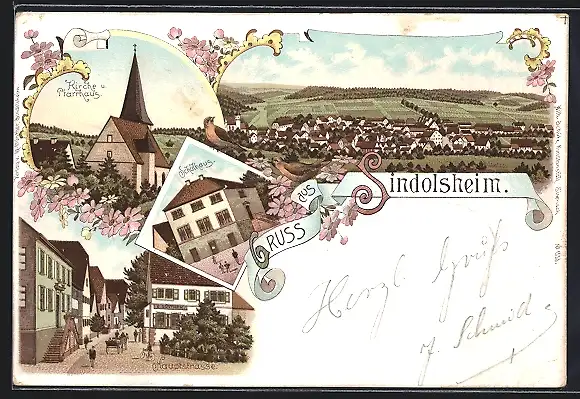 Kirche u.
Pfarrhaus.
Schulhaus.
GRUSS AUS
Sindolsheim.
Hauptstrasse.
Herzl. Gruß
J. Schmidt